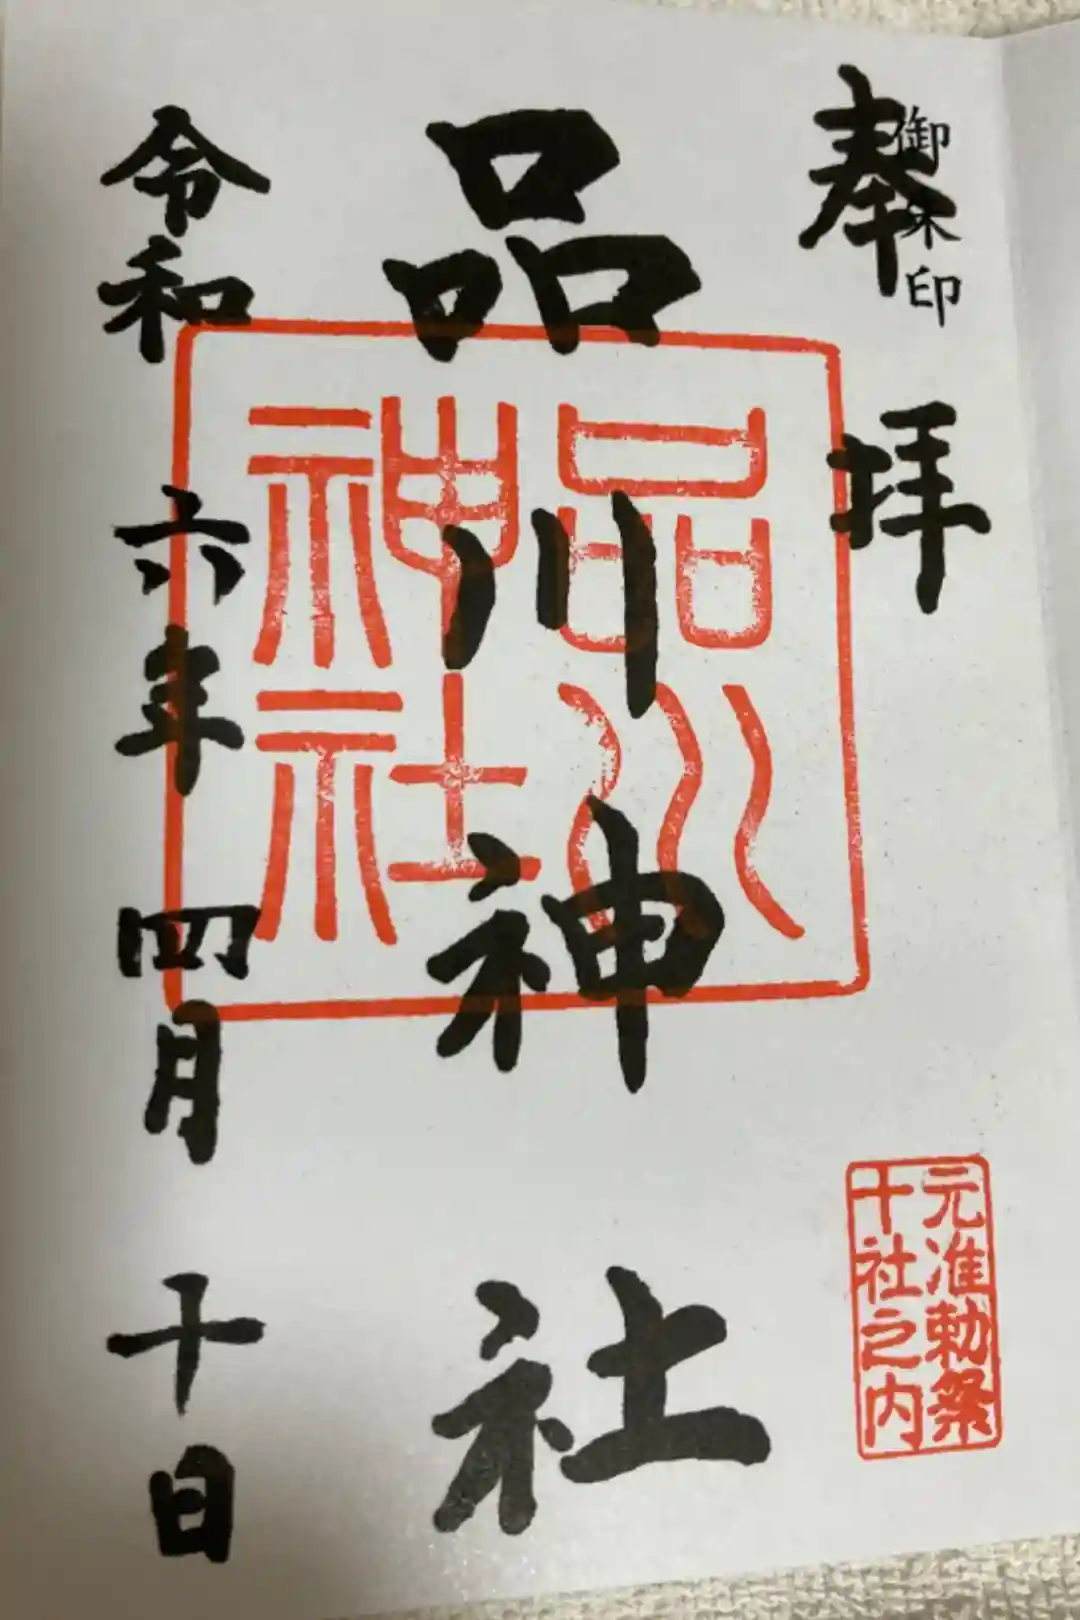 奉拝
御朱印
品川神社
品川
神社
元准勅祭
十社之内
令和六年四月十日